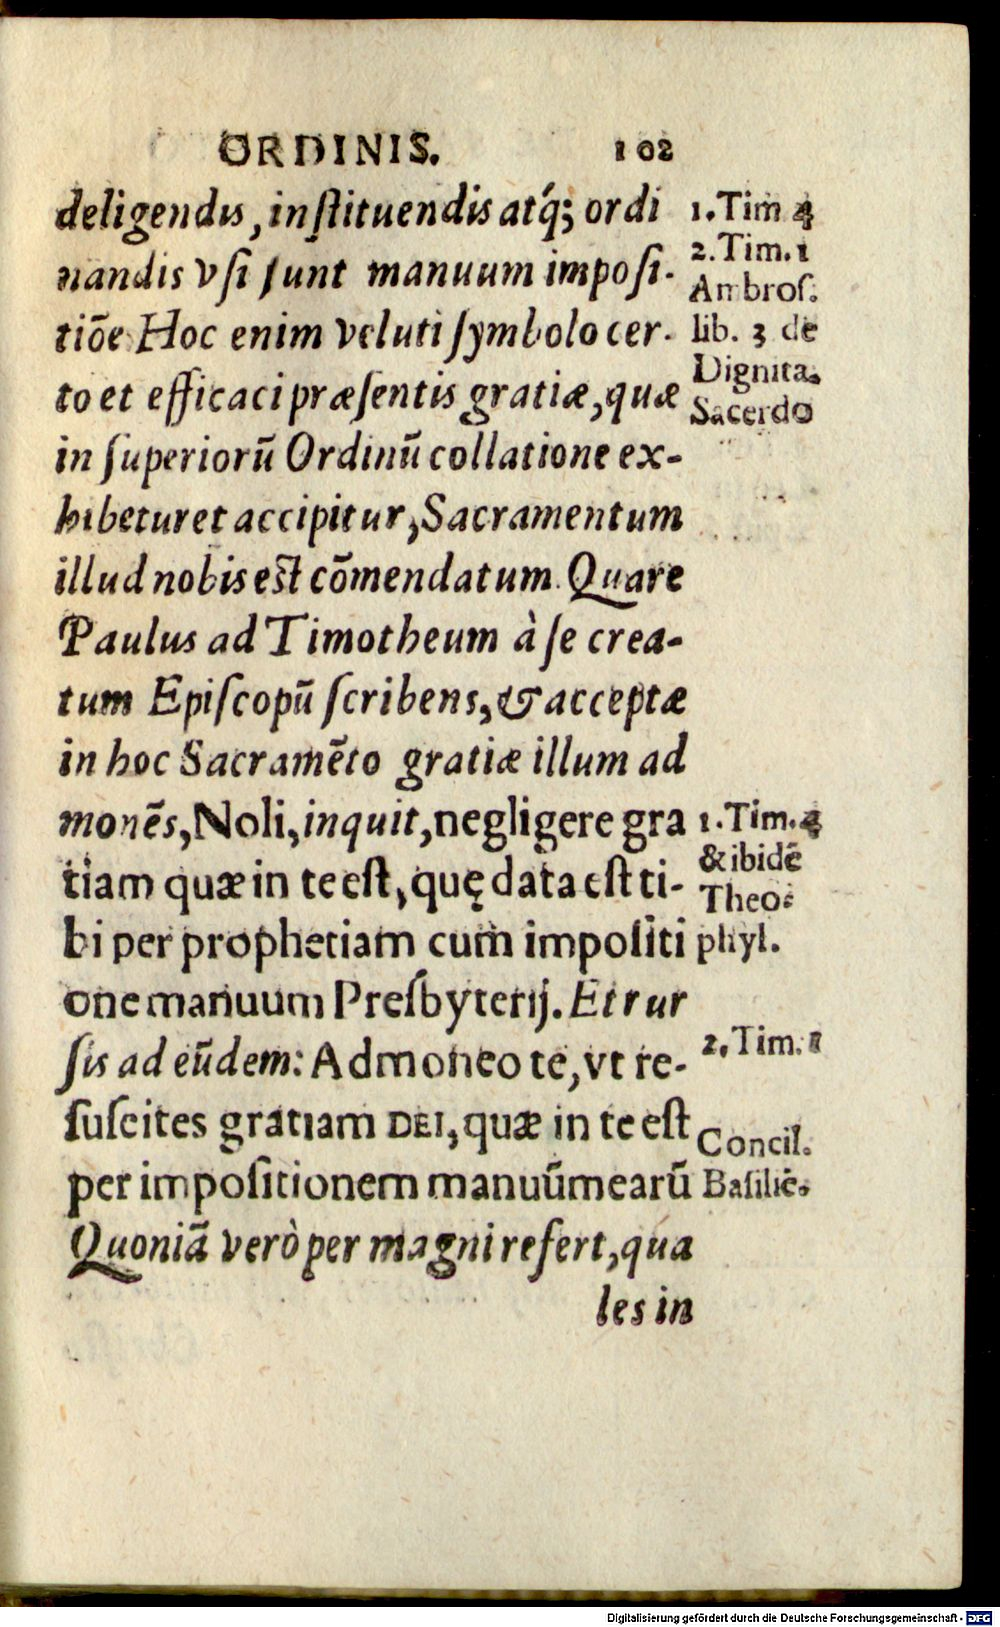 ORDINIS. 102
deligendis, instituendis atq́; ordi
nandis vsi sunt manuum imposi-
tiōe Hoc enim veluti symbolo cer-
to et efficaci præsentis gratiæ, quæ
in superiorū Ordinū collatione ex-
hibetur et accipitur, Sacramentum
illud nobis est cōmendatum. Quare
Paulus ad Timotheum à se crea-
tum Episcopū scribens, & acceptæ
in hoc Sacramēto gratiæ illum ad
monēs, Noli, inquit, negligere gra
tiam quæ in te est, quę data est ti-
bi per prophetiam cum impositi
one manuum Presbyterij. Et rur
sis ad eūdem: Admoneo te, vt re-
suscites gratiam DEI, quæ in te est
per impositionem manuū mearū
Quoniā verò per magni refert, qua
les in
1. Tim 4
2. Tim. 1
Ambros.
lib. 3 de
Dignita.
Sacerdo
1. Tim. 4
& ibidē
Theo-
phyl.
2. Tim. 1
Concil.
Basiliē.
Digitalisierung gefördert durch die Deutsche Forschungsgemeinschaft - DFG